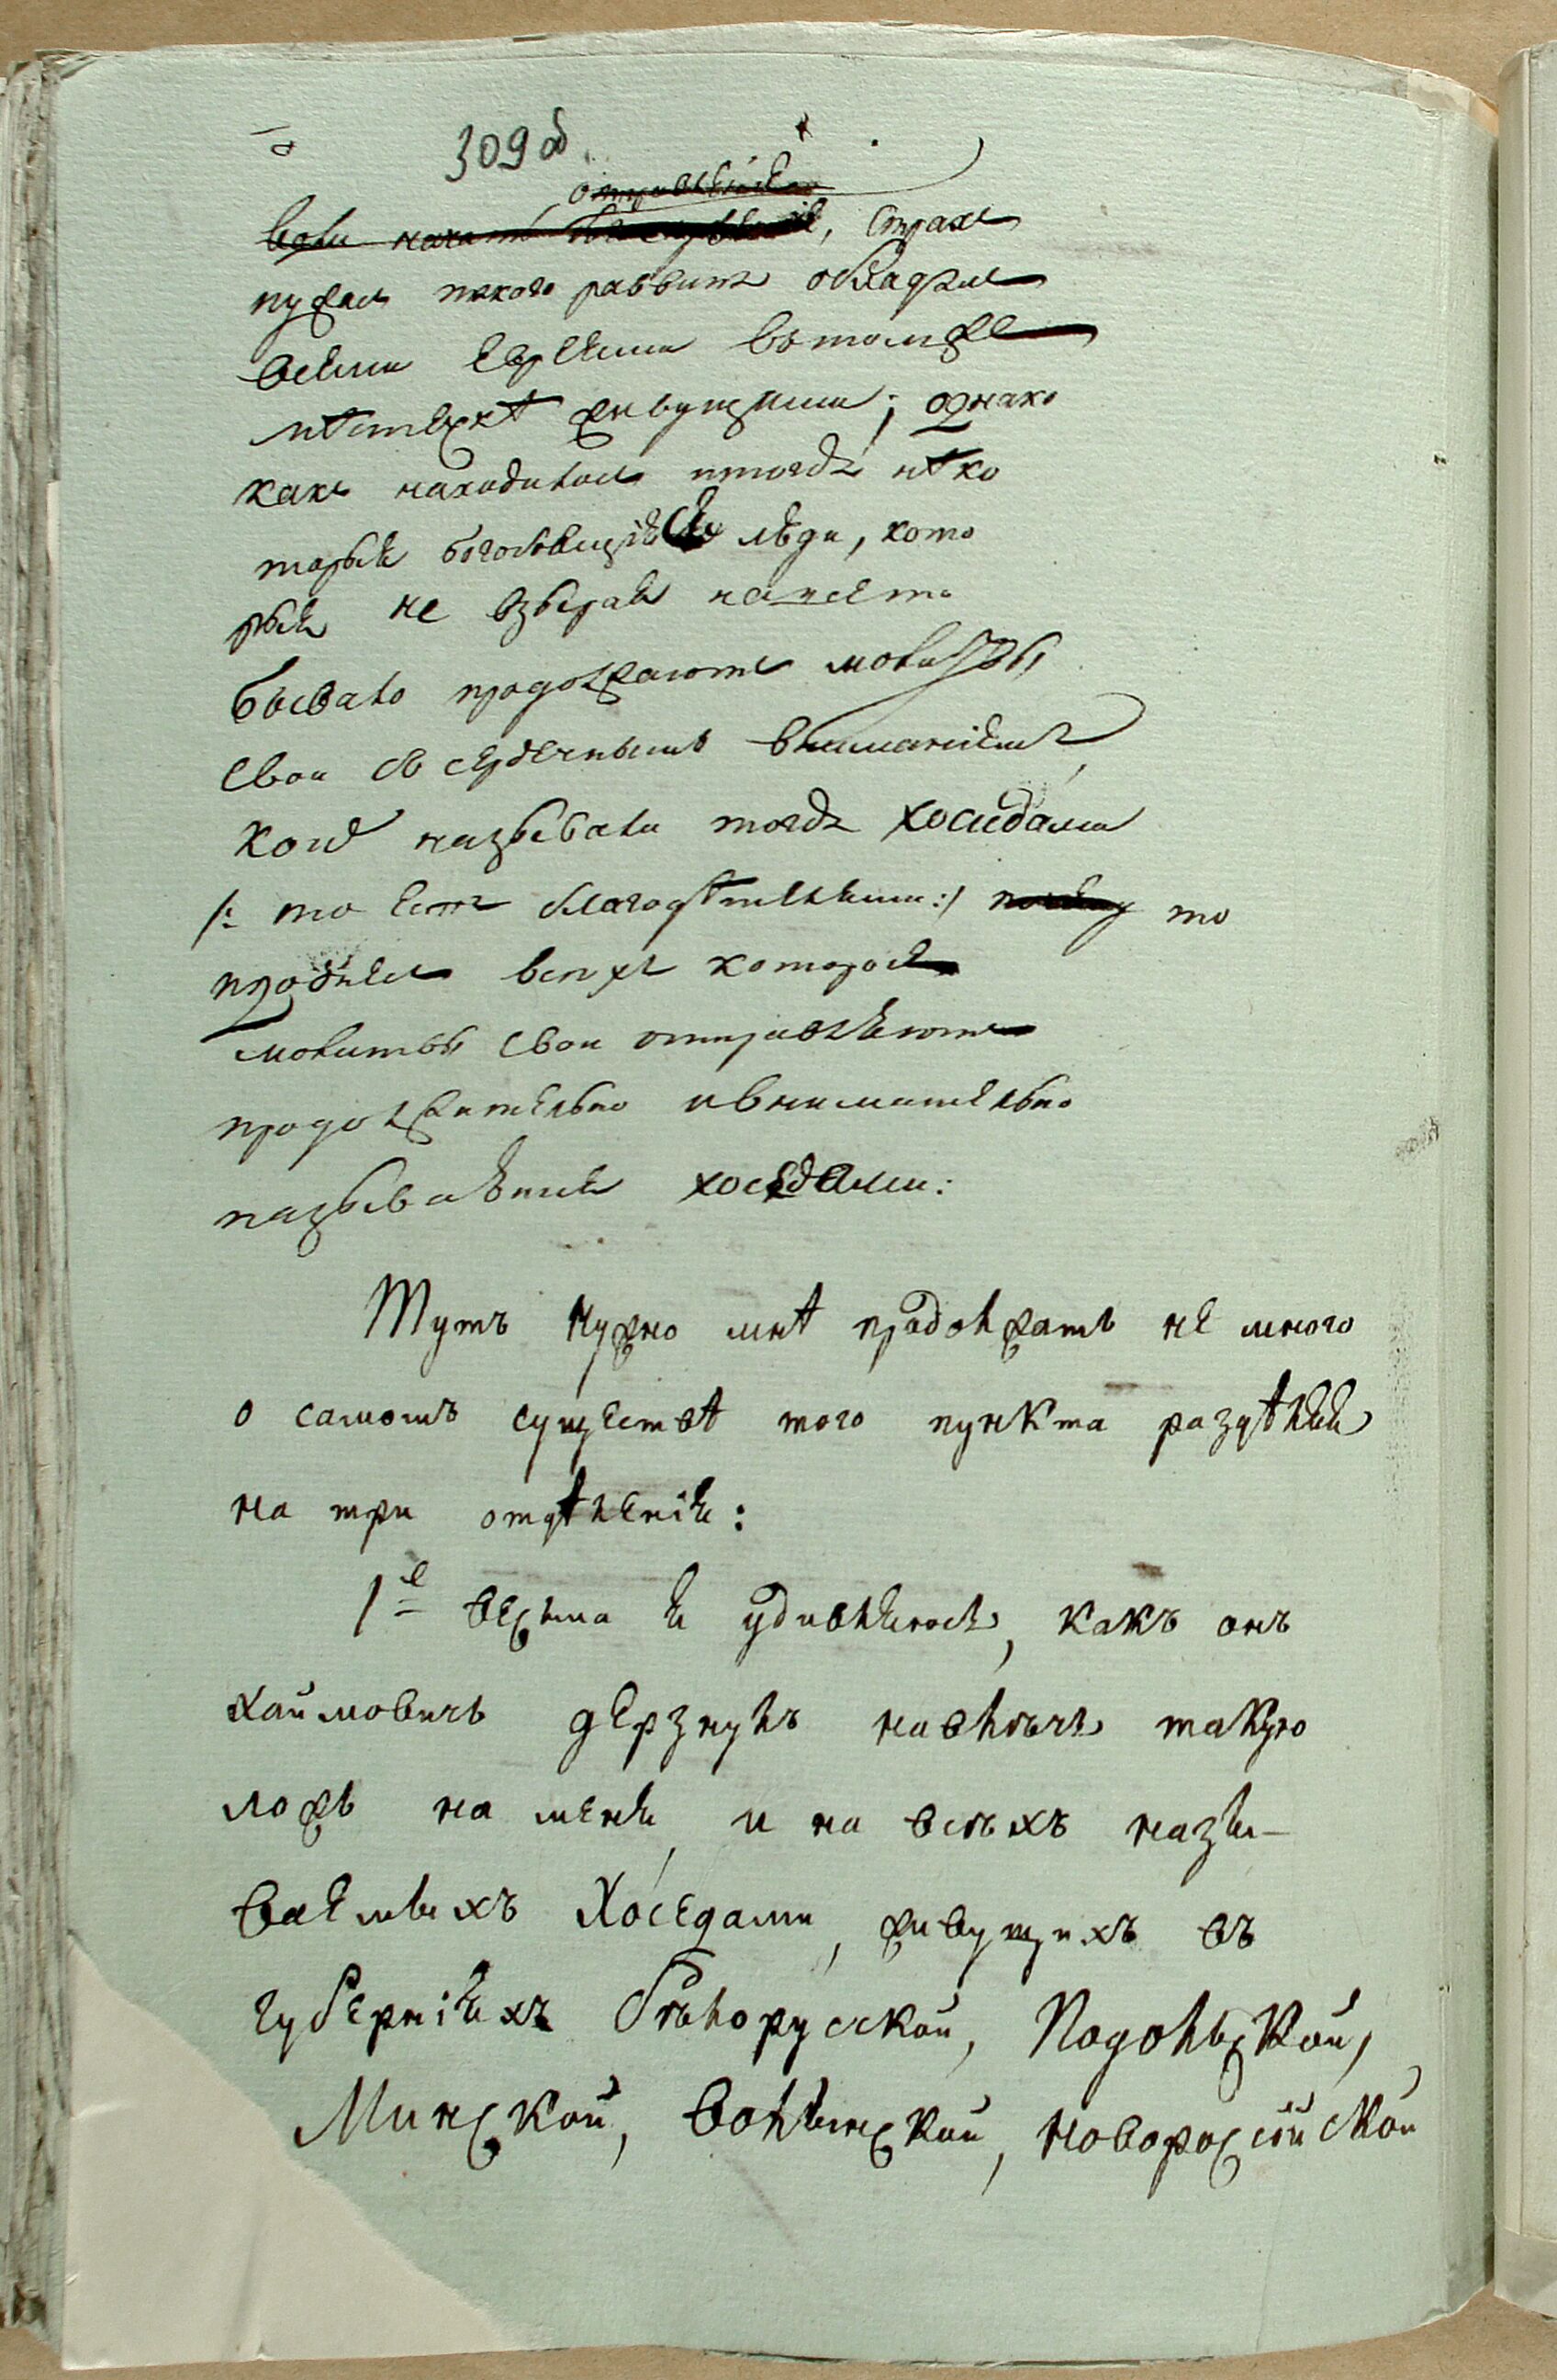 309 об
отправленіем
вали начат, страхъ
пужал такого раввинъ обладал
всеми евреями въ томъ же
мѣстечкѣ живущими; однако
какъ находились тогдъ нѣко
торые боголюбящіе люди, кото
рые не взырая на нето
бывало продолжают молитвы
свои съ сердечнымъ вниманіемъ,
коихъ называли тогдъ хосидами
/: то естъ благодѣтелнеми :/ то
протчих всѣхъ которые
молитвы свои отправляютъ
продолжительно и внимательно
называемые хоседами:
Тутъ нужно мнѣ прадолжать не много
о самомъ существѣ того пункта раздѣляя
на три отдѣленія:
1е весьма я удивляюсь, какъ онъ
Хаймовичъ дерзнулъ навлѣчь такую
ложь на меня, и на всѣхъ назы-
ваемыхъ Хоседами, живущихъ въ
губерніяхъ бѣлоруской, Подольской,
Минской, волынской, новоросійской